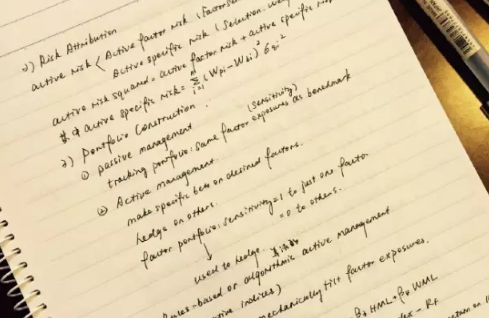 2) Risk Attribution
active risk < Active factor risk (Factor
Active specific risk (Selection,
active risk squared = active factor risk + active specific risk
其中 active specific risk = Σ (Wpi - Wbi)² σεi²
i=1
2) Portfolio Construction.
① passive management (sensitivity)
tracking portfolio: same factor exposures as benchmark
② Active management.
make specific bets on desired factors.
hedge on others.
factor portfolio: sensitivity = 1 to just one factor
= 0 to others.
used to hedge.
rules-based or algorithmic active management
(active indices)
mechanically tilt factor exposures.
HML + β4 WML
- RF